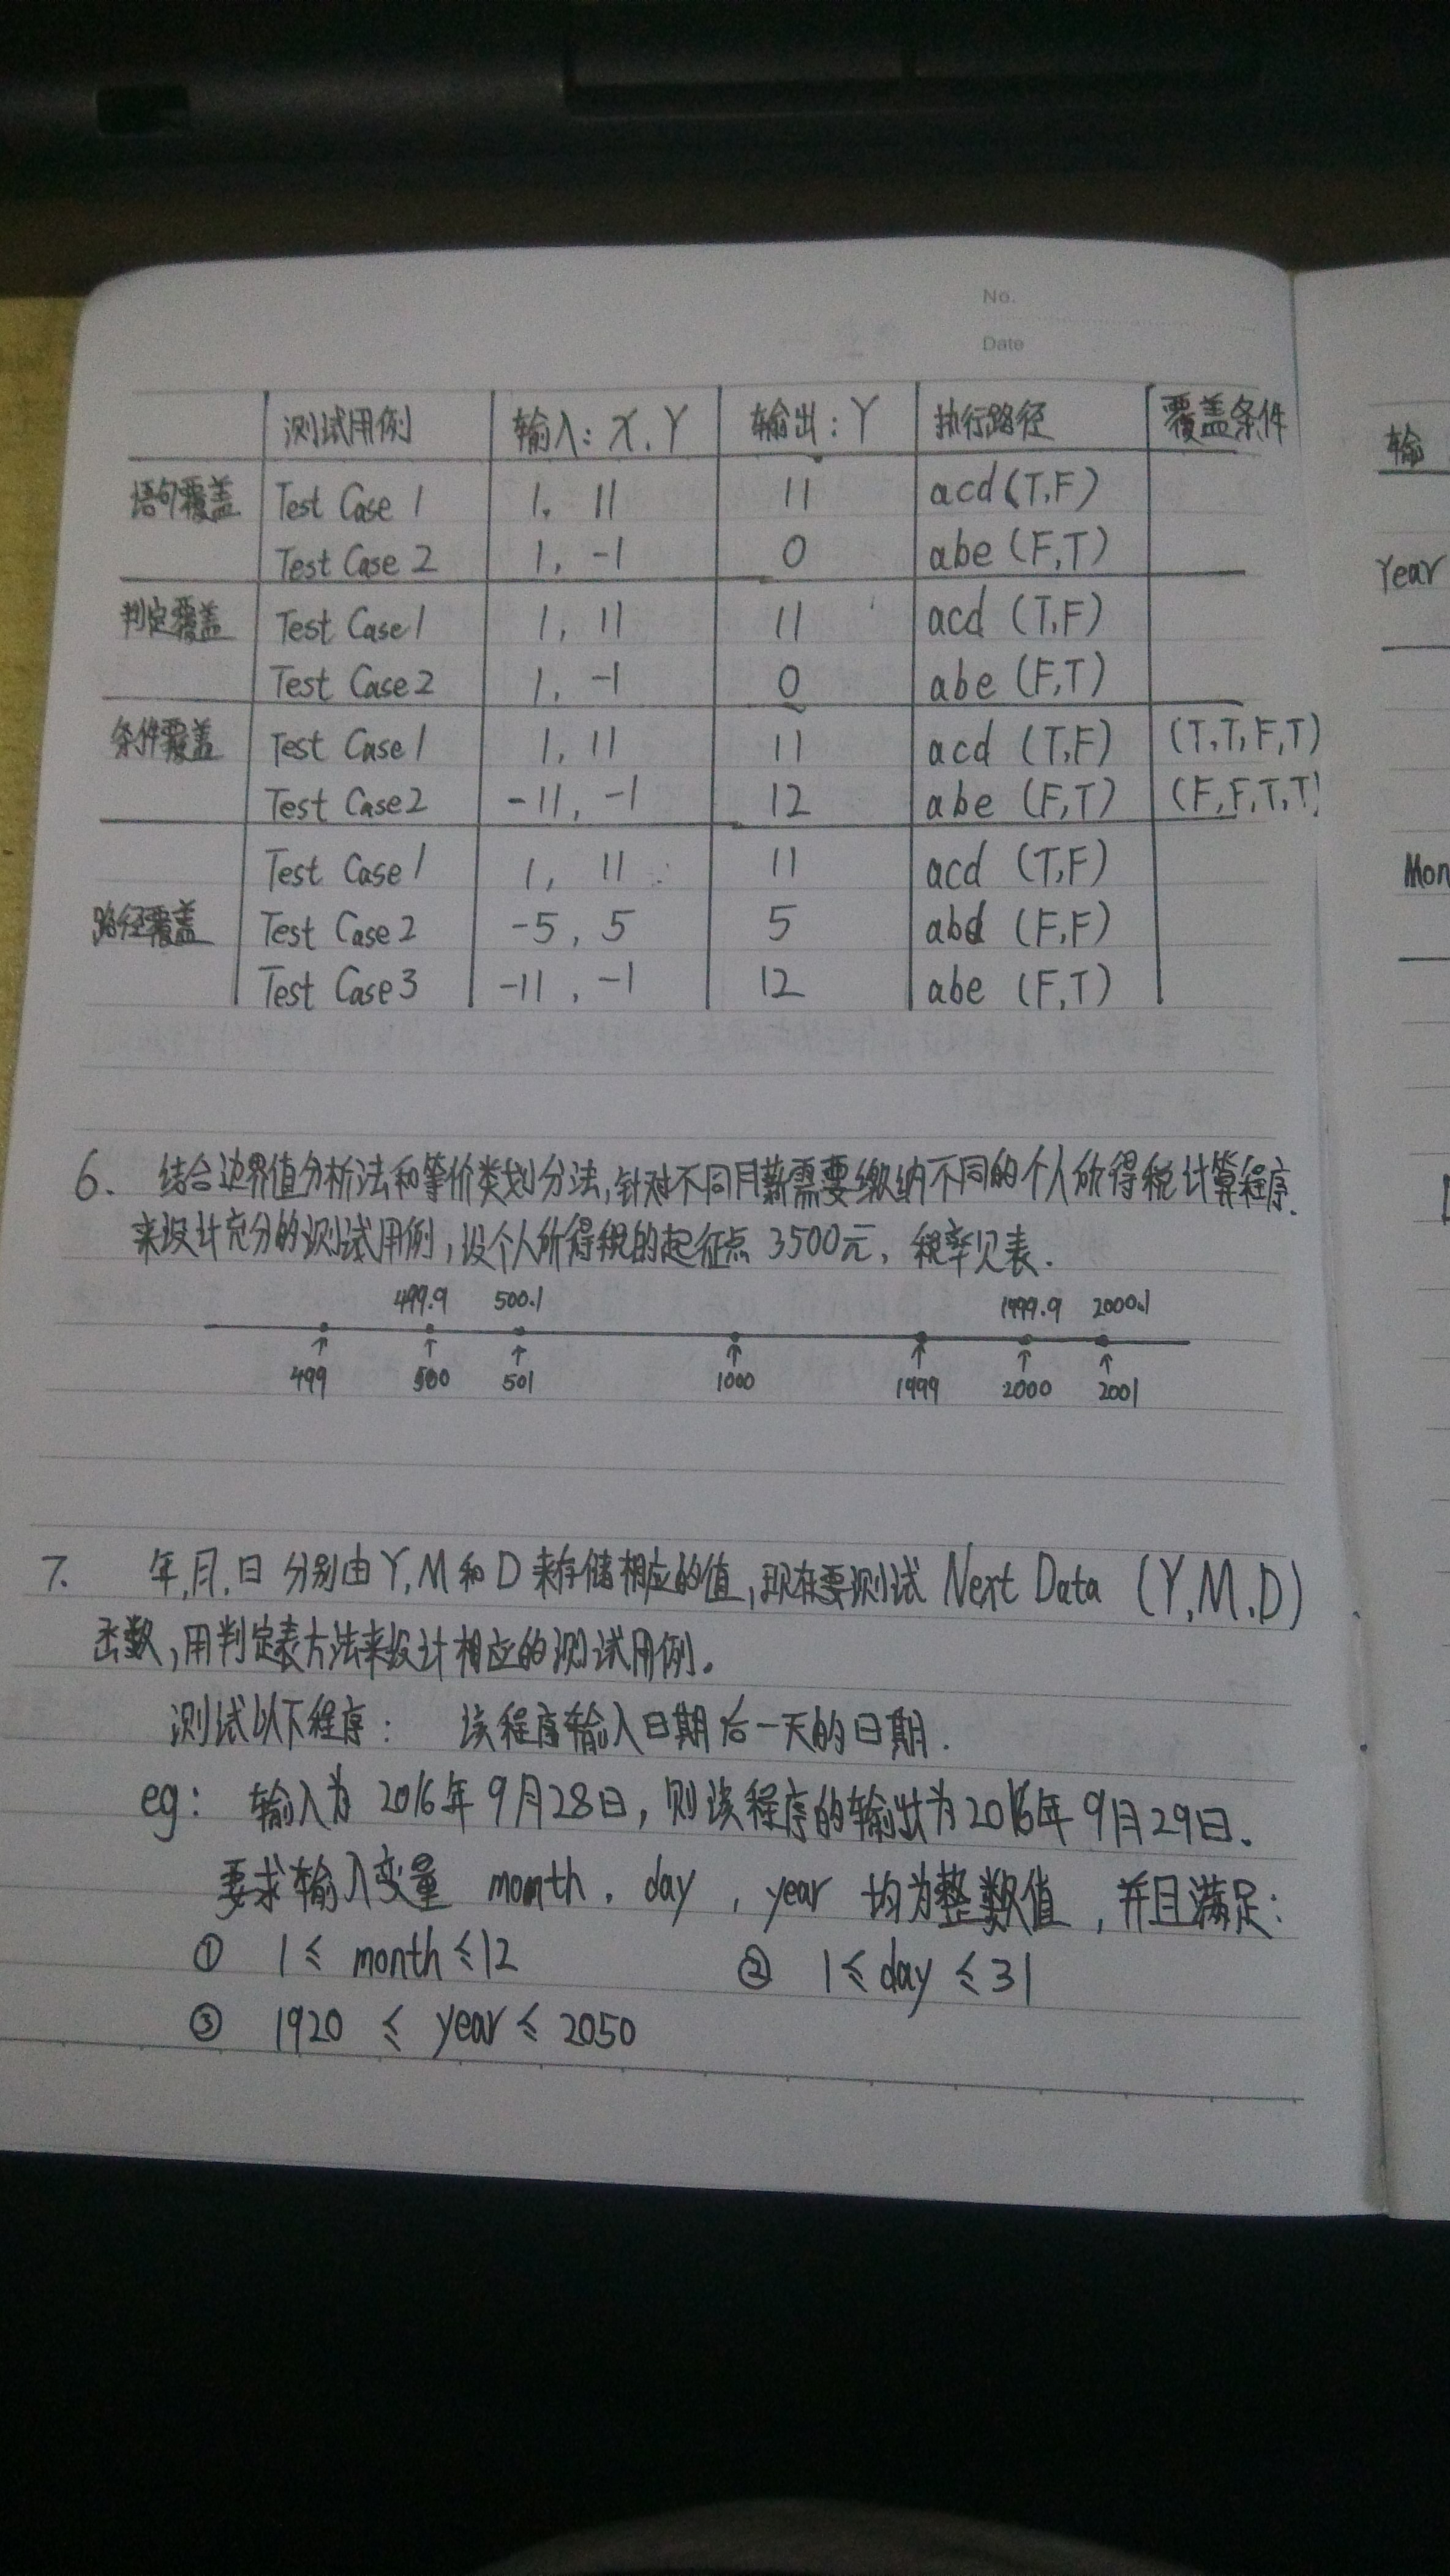 No.
Date
测试用例 输入: X, Y 输出: Y 执行路径 覆盖条件
语句覆盖 Test Case 1 1, 11 11 acd (T,F)
Test Case 2 1, -1 0 abe (F,T)
判定覆盖 Test Case 1 1, 11 11 acd (T,F)
Test Case 2 1, -1 0 abe (F,T)
条件覆盖 Test Case 1 1, 11 11 acd (T,F) (T,T,F,T)
Test Case 2 -11, -1 12 abe (F,T) (F,F,T,T)
Test Case 1 1, 11 11 acd (T,F)
路径覆盖 Test Case 2 -5, 5 5 abd (F,F)
Test Case 3 -11, -1 12 abe (F,T)
6. 结合边界值分析法和等价类划分法,针对不同月薪需要缴纳不同的个人所得税计算程序.
来设计充分的测试用例,设个人所得税的起征点3500元,税率见表.
499.9 500.1 1999.9 2000.1
499 500 501 1000 1999 2000 2001
7. 年,月,日 分别由Y,M和D来存储相应的值,现在要测试 Next Data (Y,M,D)
函数,用判定表方法来设计相应的测试用例。
测试以下程序: 该程序输入日期后一天的日期.
eg: 输入为 2016年9月28日,则该程序的输出为2016年9月29日.
要求输入变量 month, day, year 均为整数值,并且满足:
① 1≤ month ≤12 ② 1≤ day ≤31
③ 1920 ≤ year ≤ 2050
输
Year
Mon